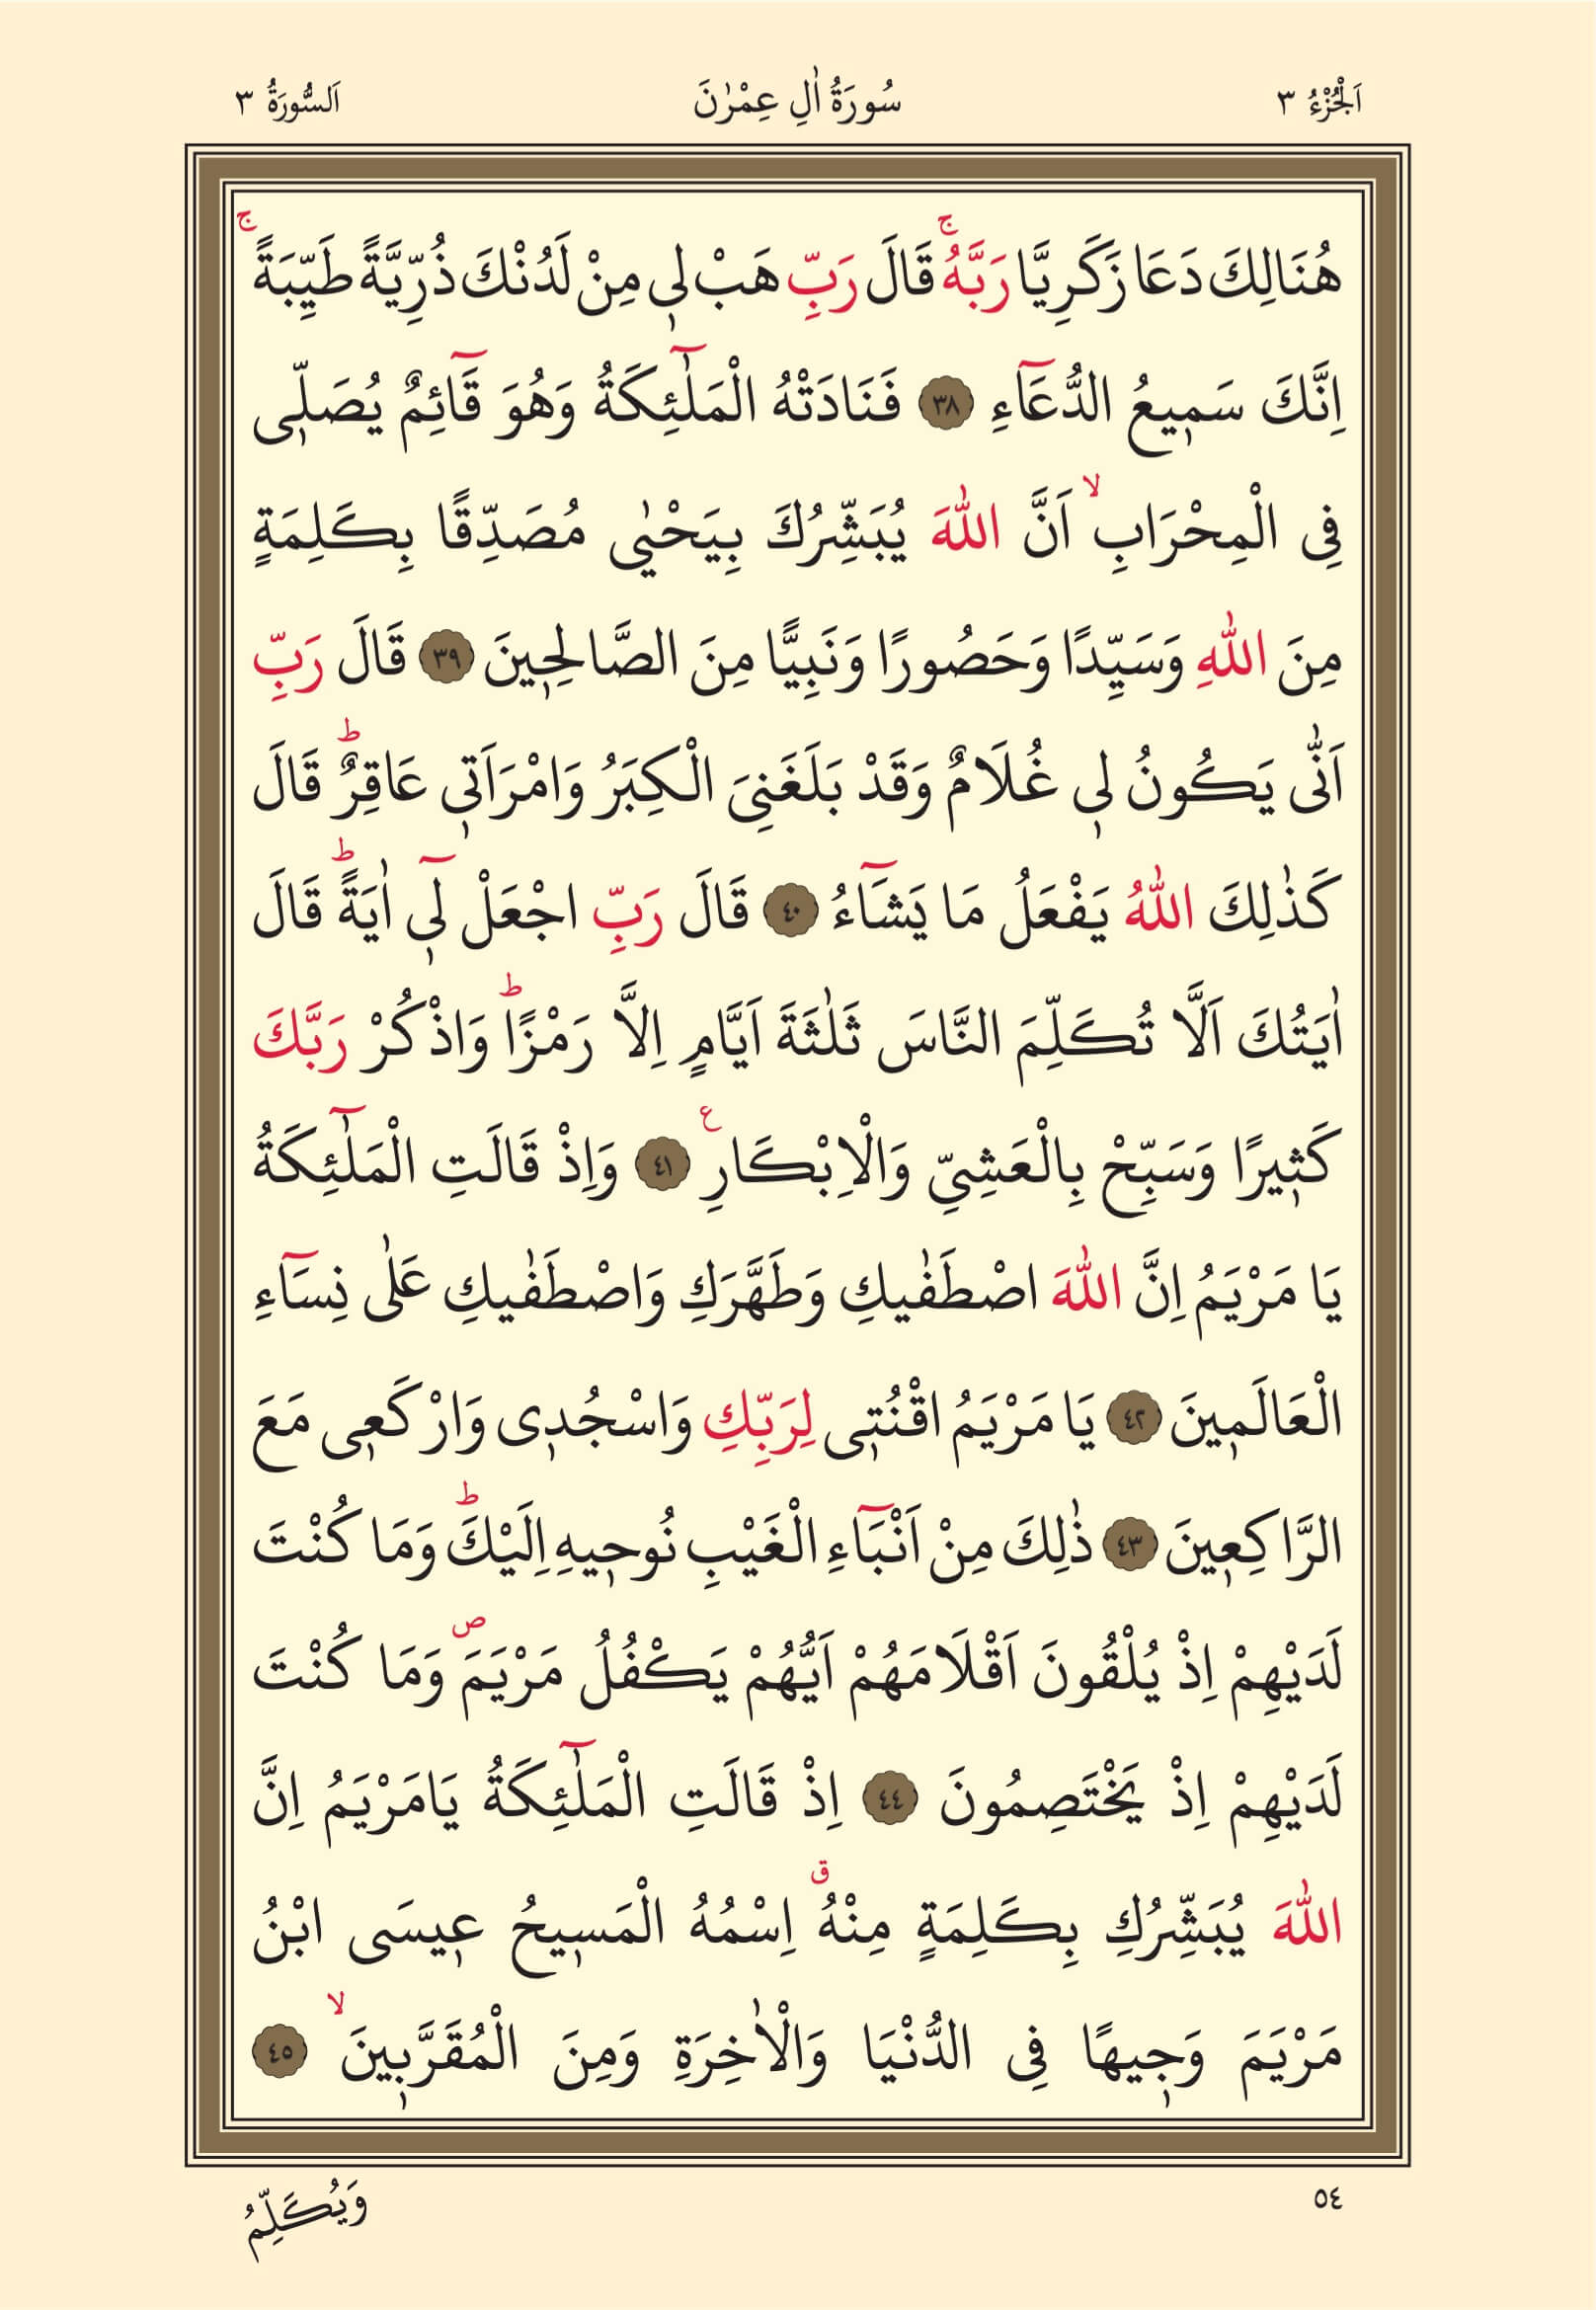 اَلْجُزْءُ ٣ سُورَةُ اٰلِ عِمْرٰنَ اَلسُّورَةُ ٣
هُنَالِكَ دَعَا زَكَرِيَّا رَبَّهُۚ قَالَ رَبِّ هَبْ لٖى مِنْ لَدُنْكَ ذُرِّيَّةً طَيِّبَةًۚ
اِنَّكَ سَمٖيعُ الدُّعَٓاءِ ﴿٣٨﴾ فَنَادَتْهُ الْمَلٰٓئِكَةُ وَهُوَ قَٓائِمٌ يُصَلّٖى
فِى الْمِحْرَابِۙ اَنَّ اللّٰهَ يُبَشِّرُكَ بِيَحْيٰى مُصَدِّقًا بِكَلِمَةٍ
مِنَ اللّٰهِ وَسَيِّدًا وَحَصُورًا وَنَبِيًّا مِنَ الصَّالِحٖينَ ﴿٣٩﴾ قَالَ رَبِّ
اَنّٰى يَكُونُ لٖى غُلَامٌ وَقَدْ بَلَغَنِىَ الْكِبَرُ وَامْرَاَتٖى عَاقِرٌؕ قَالَ
كَذٰلِكَ اللّٰهُ يَفْعَلُ مَا يَشَٓاءُ ﴿٤٠﴾ قَالَ رَبِّ اجْعَلْ لٖٓى اٰيَةًؕ قَالَ
اٰيَتُكَ اَلَّا تُكَلِّمَ النَّاسَ ثَلٰثَةَ اَيَّامٍ اِلَّا رَمْزًاؕ وَاذْكُرْ رَبَّكَ
كَثٖيرًا وَسَبِّحْ بِالْعَشِىِّ وَالْاِبْكَارِࣖ ﴿٤١﴾ وَاِذْ قَالَتِ الْمَلٰٓئِكَةُ
يَا مَرْيَمُ اِنَّ اللّٰهَ اصْطَفٰيكِ وَطَهَّرَكِ وَاصْطَفٰيكِ عَلٰى نِسَٓاءِ
الْعَالَمٖينَ ﴿٤٢﴾ يَا مَرْيَمُ اقْنُتٖى لِرَبِّكِ وَاسْجُدٖى وَارْكَعٖى مَعَ
الرَّاكِعٖينَ ﴿٤٣﴾ ذٰلِكَ مِنْ اَنْبَٓاءِ الْغَيْبِ نُوحٖيهِ اِلَيْكَؕ وَمَا كُنْتَ
لَدَيْهِمْ اِذْ يُلْقُونَ اَقْلَامَهُمْ اَيُّهُمْ يَكْفُلُ مَرْيَمَࣕ وَمَا كُنْتَ
لَدَيْهِمْ اِذْ يَخْتَصِمُونَ ﴿٤٤﴾ اِذْ قَالَتِ الْمَلٰٓئِكَةُ يَامَرْيَمُ اِنَّ
اللّٰهَ يُبَشِّرُكِ بِكَلِمَةٍ مِنْهُࣗ اِسْمُهُ الْمَسٖيحُ عٖيسَى ابْنُ
مَرْيَمَ وَجٖيهًا فِى الدُّنْيَا وَالْاٰخِرَةِ وَمِنَ الْمُقَرَّبٖينَۙ ﴿٤٥﴾
٥٤ وَيُكَلِّمُ